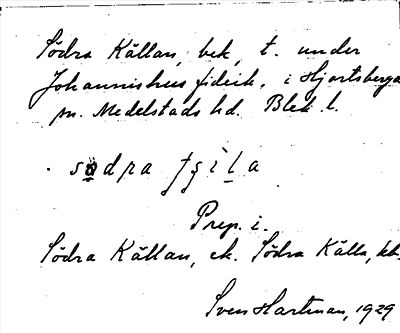 Södra Källan, bek, t. under
Johannishus fideik. i Hjortsberga
sn. Medelstads hd. Blek. l.
Prep. i.
Södra Källan, ek. Södra Källa, kb.
Sven Hartman, 1929